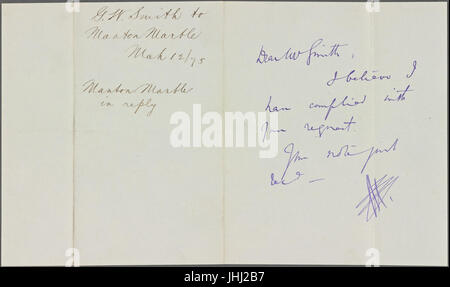 G. W. Smith to
Manton Marble
Mch 12/75
Manton Marble
in reply
Dear Mr Smith,
I believe I
have complied with
your request.
Your note just
recd —
alamy
Image ID: JHJ2B7
www.alamy.com